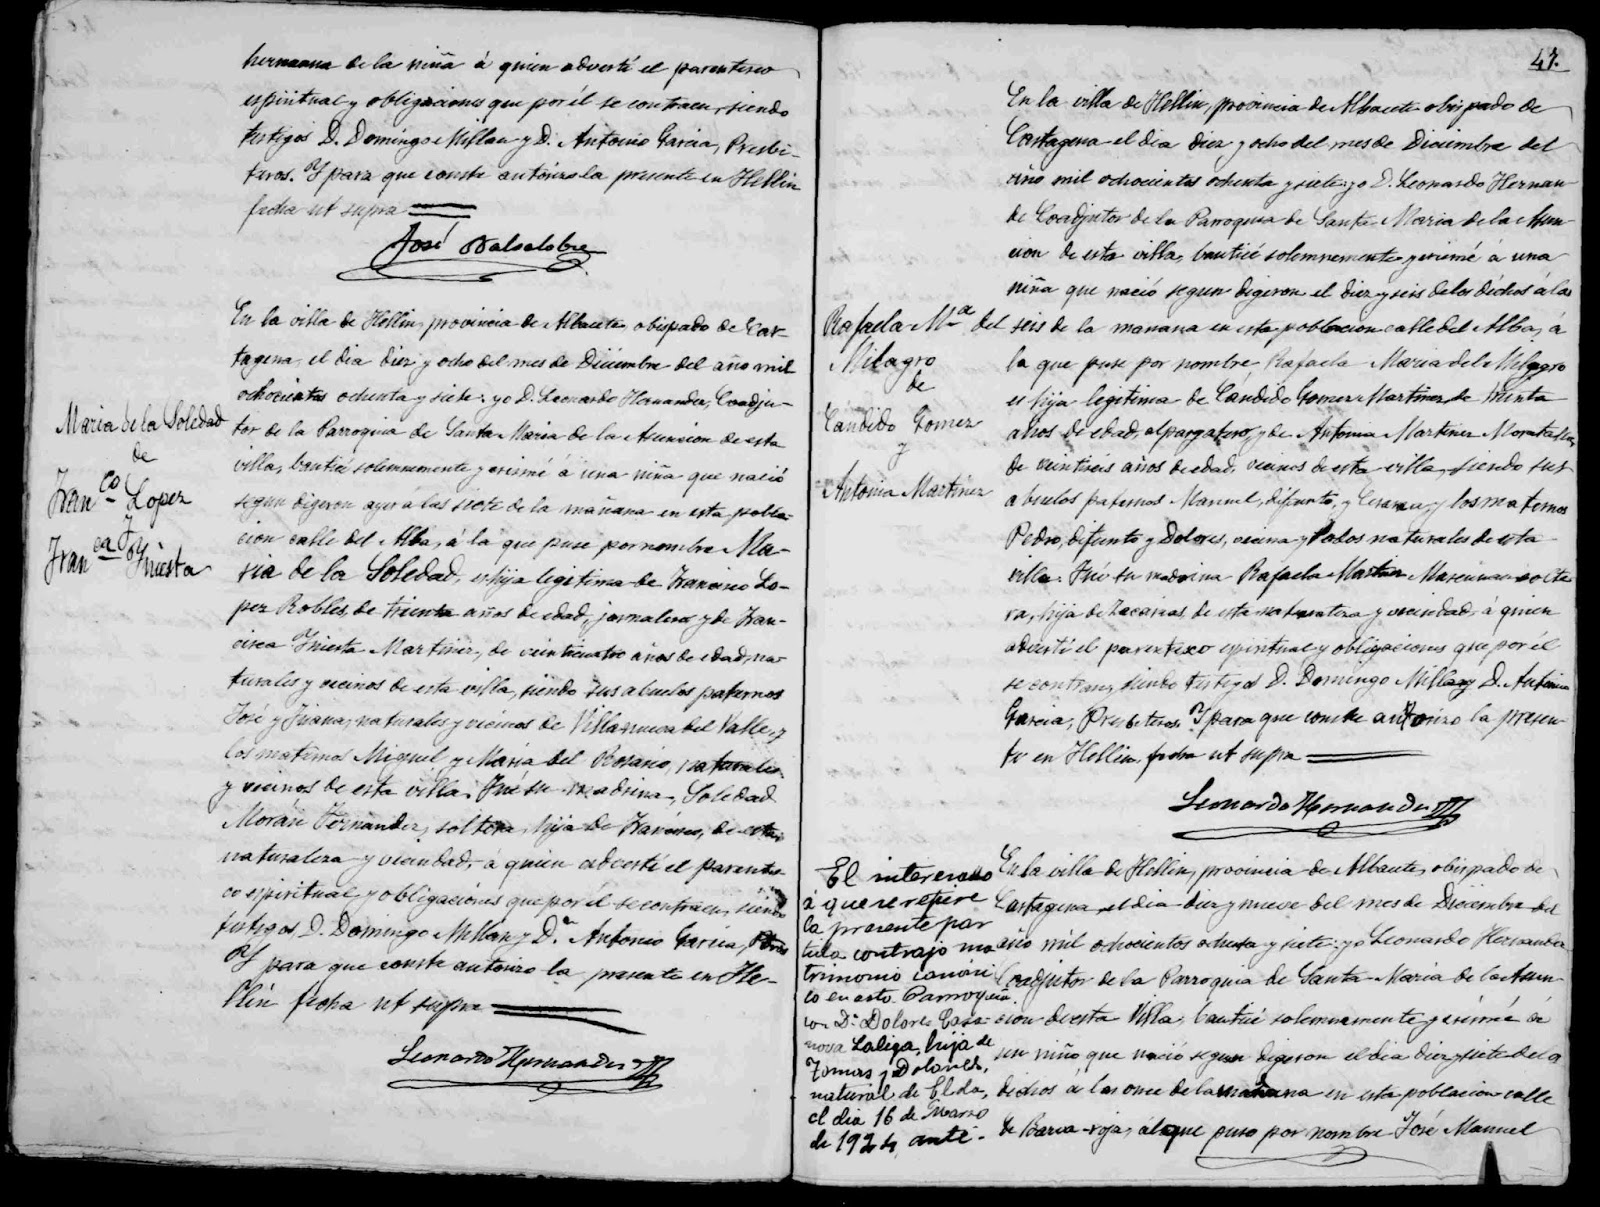 hermana de la niña á quien advertí el parentesco
espiritual y obligaciones que por él se contraen, siendo
testigos D. Domingo Millan y D. Antonio Garcia, Presbi-
teros. Y para que conste autorizo la presente en Hellin
fecha ut supra
José Balsalobre
Maria de la Soledad
de
Fran.co Lopez
y
Fran.ca Iniesta
En la villa de Hellin, provincia de Albacete, obispado de Car-
tagena, el dia diez y ocho del mes de Diciembre del año mil
ochocientos ochenta y siete: yo D. Leonardo Hernandez, Coadju-
tor de la Parroquia de Santa Maria de la Asuncion de esta
villa, bauticé solemnemente y crismé á una niña que nació
segun digeron ayer á las siete de la mañana en esta pobla-
cion calle del Alba, á la que puse por nombre Ma-
ria de la Soledad, es hija legitima de Francisco Lo-
pez Robles, de treinta años de edad, jornalero y de Fran-
cisca Iniesta Martinez, de veinticuatro años de edad, na-
turales y vecinos de esta villa, siendo sus abuelos paternos
José y Juana, naturales y vecinos de Villanueva del Valle, y
los maternos Miguel y Maria del Rosario, naturales
y vecinos de esta villa. Fué su madrina, Soledad
Morán Fernandez, soltera, hija de Francisco, de esta
naturaleza y vecindad, á quien advertí el parentes-
co espiritual y obligaciones que por él se contraen, siendo
testigos D. Domingo Millan y D. Antonio Garcia,
Y para que conste autorizo la presente en He-
llin fecha ut supra
Leonardo Hernandez
47.
Rafaela M.a del
Milagro
de
Cándido Gomez
y
Antonia Martinez
En la villa de Hellin, provincia de Albacete obispado de
Cartagena el dia diez y ocho del mes de Diciembre del
año mil ochocientos ochenta y siete: yo D. Leonardo Hernan-
de Coadjutor de la Parroquia de Santa Maria de la Asun-
cion de esta villa, bauticé solemnemente y crismé á una
niña que nació segun digeron el diez y seis de los dichos á las
seis de la mañana en esta poblacion calle del Alba, á
la que puse por nombre Rafaela Maria del Milagro
es hija legitima de Cándido Gomez Martinez, de treinta
años de edad, alpargatero, y de Antonia Martinez Moratalla,
de veintiseis años de edad, vecinos de esta villa, siendo sus
abuelos paternos Manuel, difunto, y y los maternos
Pedro, difunto y Dolores, vecina y todos naturales de esta
villa. Fué su madrina Rafaela solte-
ra, hija de Zacarias, de esta naturaleza y vecindad, á quien
advertí el parentesco espiritual y obligaciones que por él
se contraen, siendo testigos D. Domingo Millan y D. Antonio
Garcia, Presbiteros. Y para que conste autorizo la presen-
te en Hellin fecha ut supra
Leonardo Hernandez
El interesado
á que se refiere
la presente par
tida contrajo ma
trimonio canóni
co en esta Parroquia
con D.a Dolores Casa-
nova Laliga, hija de
Tomas y Dolores,
natural de Elda,
el dia 16 de Marzo
de 1924, ante-
En la villa de Hellin, provincia de Albacete, obispado de
Cartagena el dia diez y nueve del mes de Diciembre del
año mil ochocientos ochenta y siete: yo Leonardo Hernandez
Coadjutor de la Parroquia de Santa Maria de la Asun-
cion de esta Villa, bauticé solemnemente y crismé á
un niño que nació segun digeron el dia diez y siete de los
dichos á las once de la mañana en esta poblacion calle
de Barca-roja, al que puse por nombre José Manuel